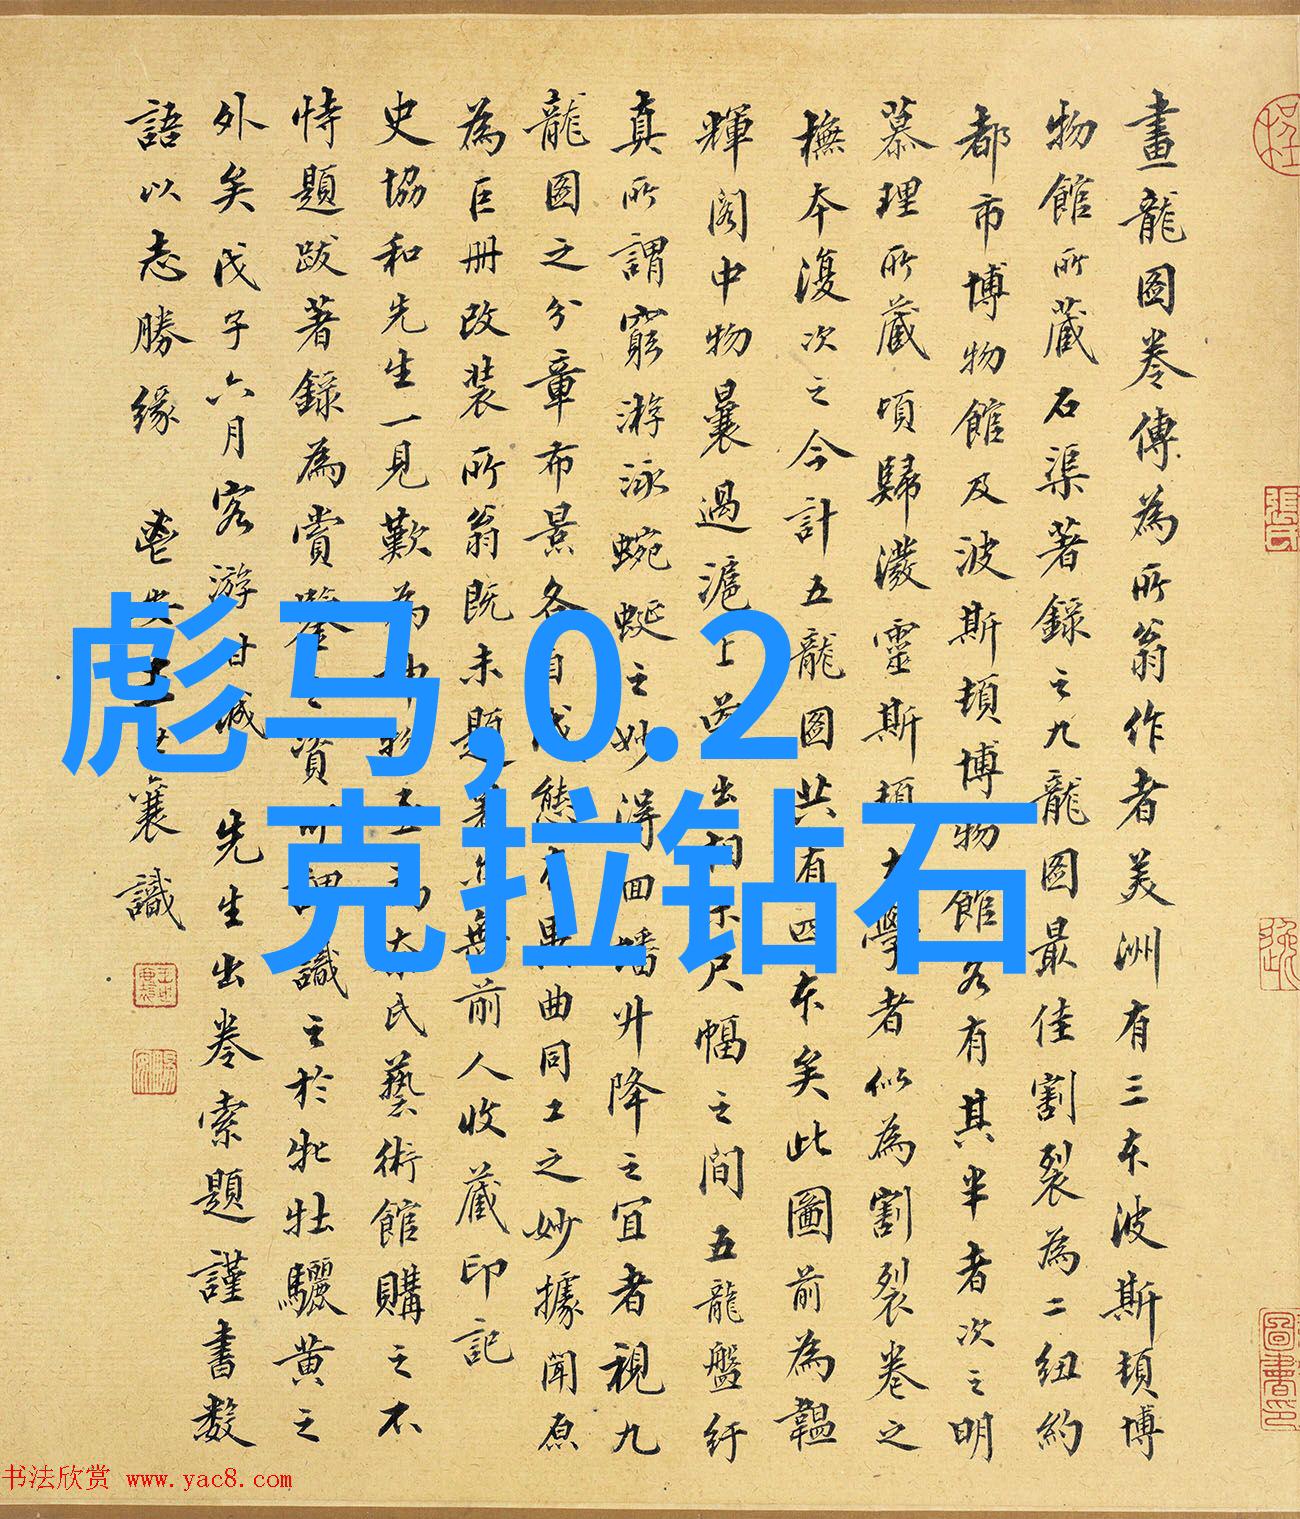 畫龍圖卷傳為所翁作者美洲有三本波斯頓博
物館所藏石渠著錄之九龍圖最佳割裂為二紐約
都市博物館及波斯頓博物館各有其半者次之明
慕理所藏頃歸瀠靈斯頓大學者似為割裂卷之
橅本復次之今計五龍圖共有四本矣此圖前為韞
輝閣中物曩過滬上曾出相示尺幅之間五龍盤紆
真所謂窮游泳蜿蜒之妙得回蟠升降之宜者視九
龍圖之分章布景各自成態有異曲同工之妙據聞原
為巨冊改裝所翁既未題署亦無前人收藏印記
史協和先生一見歎為神物
氏藝術館購之不
恃題跋著錄為賞鑒之資
識之於牝牡驪黄之
外矣戊子六月客游甘城 先生出卷索題謹書数
語以志勝緣
襄識
彪马,0.2
克拉钻石
張氏
圖書印
书法欣赏 www.yac8.com